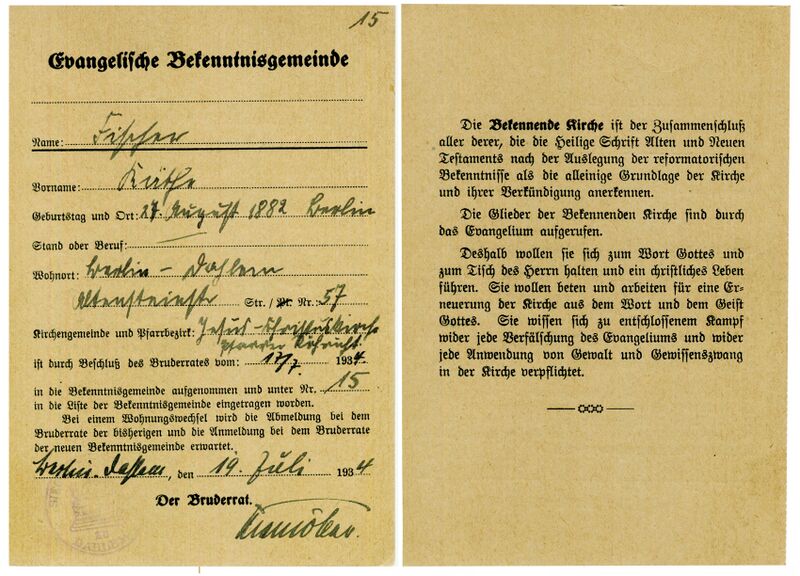 15
Evangelische Bekenntnisgemeinde
Name: Fischer
Vorname: Käthe
Geburtstag und Ort: 27. August 1882 Berlin
Stand oder Beruf:
Wohnort: Berlin-Dahlem
Altensteinstr Str./Pl. Nr.: 57
Kirchengemeinde und Pfarrbezirk: Jesus-Christuskirche
Pfarrer Röhricht
ist durch Beschluß des Bruderrates vom: 17/7. 1934
in die Bekenntnisgemeinde aufgenommen und unter Nr. 15
in die Liste der Bekenntnisgemeinde eingetragen worden.
Bei einem Wohnungswechsel wird die Abmeldung bei dem
Bruderrate der bisherigen und die Anmeldung bei dem Bruderrate
der neuen Bekenntnisgemeinde erwartet.
Berlin-Dahlem, den 19. Juli 1934
Der Bruderrat.
DAHLEM
Die Bekennende Kirche ist der Zusammenschluß
aller derer, die die Heilige Schrift Alten und Neuen
Testaments nach der Auslegung der reformatorischen
Bekenntnisse als die alleinige Grundlage der Kirche
und ihrer Verkündigung anerkennen.
Die Glieder der Bekennenden Kirche sind durch
das Evangelium aufgerufen.
Deshalb wollen sie sich zum Wort Gottes und
zum Tisch des Herrn halten und ein christliches Leben
führen. Sie wollen beten und arbeiten für eine Er-
neuerung der Kirche aus dem Wort und dem Geist
Gottes. Sie wissen sich zu entschlossenem Kampf
wider jede Verfälschung des Evangeliums und wider
jede Anwendung von Gewalt und Gewissenszwang
in der Kirche verpflichtet.